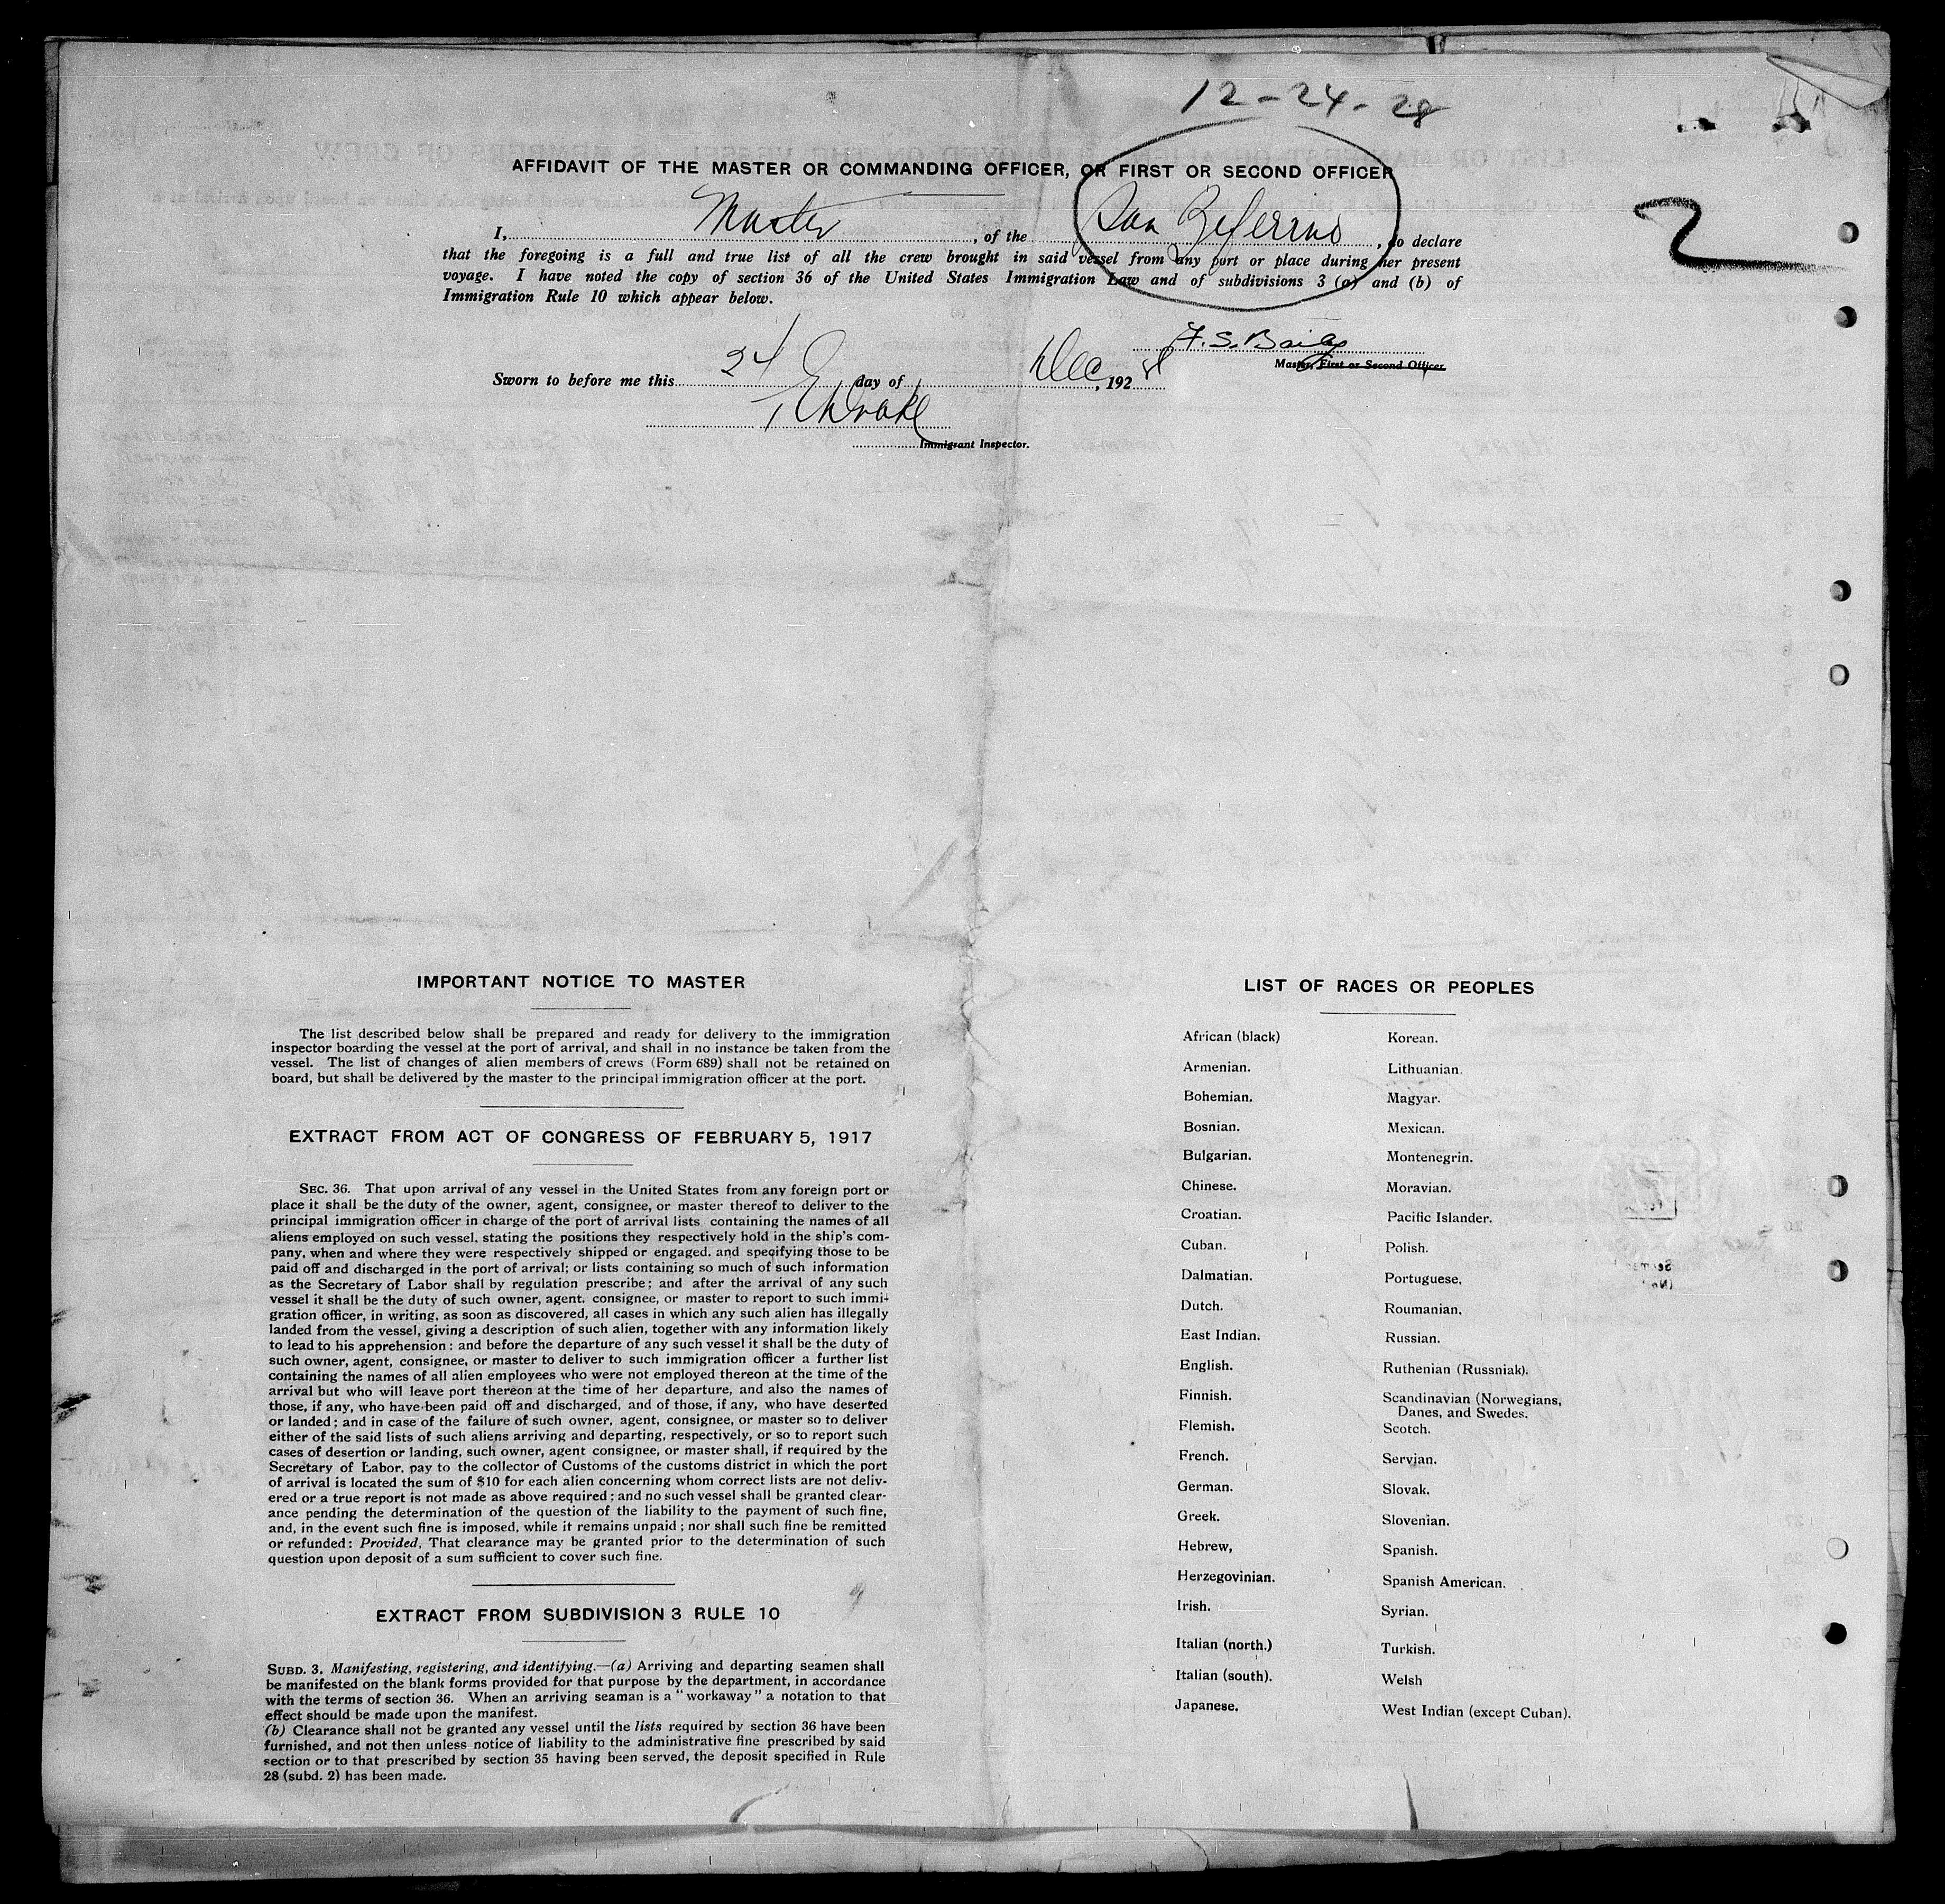 12-24-28
AFFIDAVIT OF THE MASTER OR COMMANDING OFFICER, OR FIRST OR SECOND OFFICER
2
I, Master, of the San Zeferino, do declare
that the foregoing is a full and true list of all the crew brought in said vessel from any port or place during her present
voyage. I have noted the copy of section 36 of the United States Immigration Law and of subdivisions 3 (a) and (b) of
Immigration Rule 10 which appear below.
F. S. Baily
Master, First or Second Officer.
Sworn to before me this 24 day of Dec, 1928
Drake
Immigrant Inspector.
IMPORTANT NOTICE TO MASTER
The list described below shall be prepared and ready for delivery to the immigration
inspector boarding the vessel at the port of arrival, and shall in no instance be taken from the
vessel. The list of changes of alien members of crews (Form 689) shall not be retained on
board, but shall be delivered by the master to the principal immigration officer at the port.
EXTRACT FROM ACT OF CONGRESS OF FEBRUARY 5, 1917
SEC. 36. That upon arrival of any vessel in the United States from any foreign port or
place it shall be the duty of the owner, agent, consignee, or master thereof to deliver to the
principal immigration officer in charge of the port of arrival lists containing the names of all
aliens employed on such vessel, stating the positions they respectively hold in the ship's com-
pany, when and where they were respectively shipped or engaged. and specifying those to be
paid off and discharged in the port of arrival; or lists containing so much of such information
as the Secretary of Labor shall by regulation prescribe; and after the arrival of any such
vessel it shall be the duty of such owner, agent. consignee, or master to report to such immi-
gration officer, in writing, as soon as discovered, all cases in which any such alien has illegally
landed from the vessel, giving a description of such alien, together with any information likely
to lead to his apprehension: and before the departure of any such vessel it shall be the duty of
such owner, agent, consignee, or master to deliver to such immigration officer a further list
containing the names of all alien employees who were not employed thereon at the time of the
arrival but who will leave port thereon at the time of her departure, and also the names of
those, if any, who have been paid off and discharged, and of those, if any, who have deserted
or landed; and in case of the failure of such owner, agent, consignee, or master so to deliver
either of the said lists of such aliens arriving and departing, respectively, or so to report such
cases of desertion or landing, such owner, agent consignee, or master shall, if required by the
Secretary of Labor, pay to the collector of Customs of the customs district in which the port
of arrival is located the sum of $10 for each alien concerning whom correct lists are not deliv-
ered or a true report is not made as above required; and no such vessel shall be granted clear-
ance pending the determination of the question of the liability to the payment of such fine,
and, in the event such fine is imposed, while it remains unpaid; nor shall such fine be remitted
or refunded: Provided, That clearance may be granted prior to the determination of such
question upon deposit of a sum sufficient to cover such fine.
EXTRACT FROM SUBDIVISION 3 RULE 10
SUBD. 3. Manifesting, registering, and identifying.—(a) Arriving and departing seamen shall
be manifested on the blank forms provided for that purpose by the department, in accordance
with the terms of section 36. When an arriving seaman is a "workaway" a notation to that
effect should be made upon the manifest.
(b) Clearance shall not be granted any vessel until the lists required by section 36 have been
furnished, and not then unless notice of liability to the administrative fine prescribed by said
section or to that prescribed by section 35 having been served, the deposit specified in Rule
28 (subd. 2) has been made.
LIST OF RACES OR PEOPLES
African (black)
Armenian.
Bohemian.
Bosnian.
Bulgarian.
Chinese.
Croatian.
Cuban.
Dalmatian.
Dutch.
East Indian.
English.
Finnish.
Flemish.
French.
German.
Greek.
Hebrew,
Herzegovinian.
Irish.
Italian (north.)
Italian (south).
Japanese.
Korean.
Lithuanian.
Magyar.
Mexican.
Montenegrin.
Moravian.
Pacific Islander.
Polish.
Portuguese.
Roumanian.
Russian.
Ruthenian (Russniak).
Scandinavian (Norwegians,
Danes, and Swedes.
Scotch.
Servian.
Slovak.
Slovenian.
Spanish.
Spanish American.
Syrian.
Turkish.
Welsh
West Indian (except Cuban).